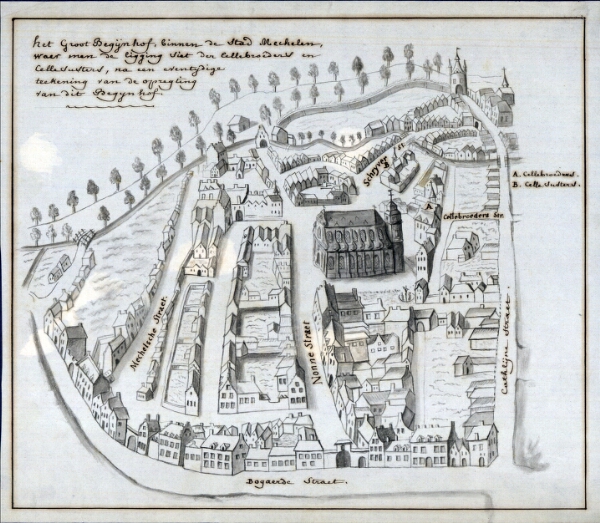 het Groot Begijnhof, binnen de Stad Mechelen,
waer men de ligging siet der Cellebroeders en
Cellesusters, na een eventydige
teekening van de opregting
van dit Begijnhof.
A. Cellebroeders.
B. Celle Susters.
A
Cellebroeders Str.
Mechelsche Straet.
Nonne Straet
Cathlijne Straet.
Bogaerde Straet.